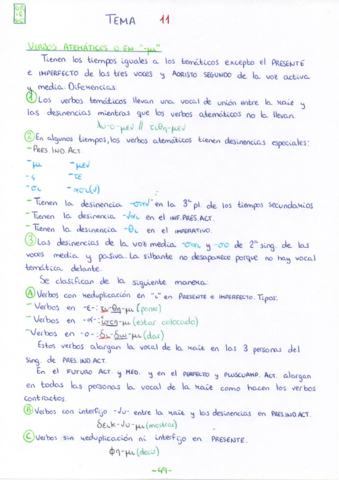 TEMA 11
VERBOS ATEMÁTICOS O EN "-μι"
Tienen los tiempos iguales a los temáticos excepto el PRESENTE
e IMPERFECTO de las tres voces y AORISTO SEGUNDO de la voz activa
y media. Diferencias:
① Los verbos temáticos llevan una vocal de unión entre la raíz y
las desinencias mientras que los verbos atemáticos no la llevan.
λυ-ο-μεν // τιθη-μεν
② En algunos tiempos, los verbos atemáticos tienen desinencias especiales:
-PRES.IND.ACT.
-μι -μεν
-ς -τε
-σι -ασι(ν)
-Tienen la desinencia -σαν en la 3ª pl. de los tiempos secundarios
-Tienen la desinencia -ναι en el INF.PRES.ACT.
-Tienen la desinencia -θι en el IMPERATIVO.
③ Las desinencias de la voz media -σαι y -σο de 2ª sing. de las
voces media y pasiva. La silbante no desaparece porque no hay vocal
temática delante.
Se clasifican de la siguiente manera:
Ⓐ Verbos con reduplicación en "ι" en PRESENTE e IMPERFECTO. Tipos:
-Verbos en -ε-: τι-θη-μι (poner)
-Verbos en -α-: ἵστη-μι (estar colocado)
-Verbos en -ο-: δι-δω-μι (dar)
Estos verbos alargan la vocal de la raíz en las 3 personas del
sing. de PRES.IND.ACT.
En el FUTURO ACT. y MED. y en el PERFECTO y PLUSCUAMP. ACT. alargan
en todas las personas la vocal de la raíz como hacen los verbos
contractos.
Ⓑ Verbos con interfijo -νυ- entre la raíz y las desinencias en PRES.IND.ACT.
δεικ-νυ-μι (mostrar)
Ⓒ Verbos sin reduplicación ni interfijo en PRESENTE.
φη-μι (decir)
-49-